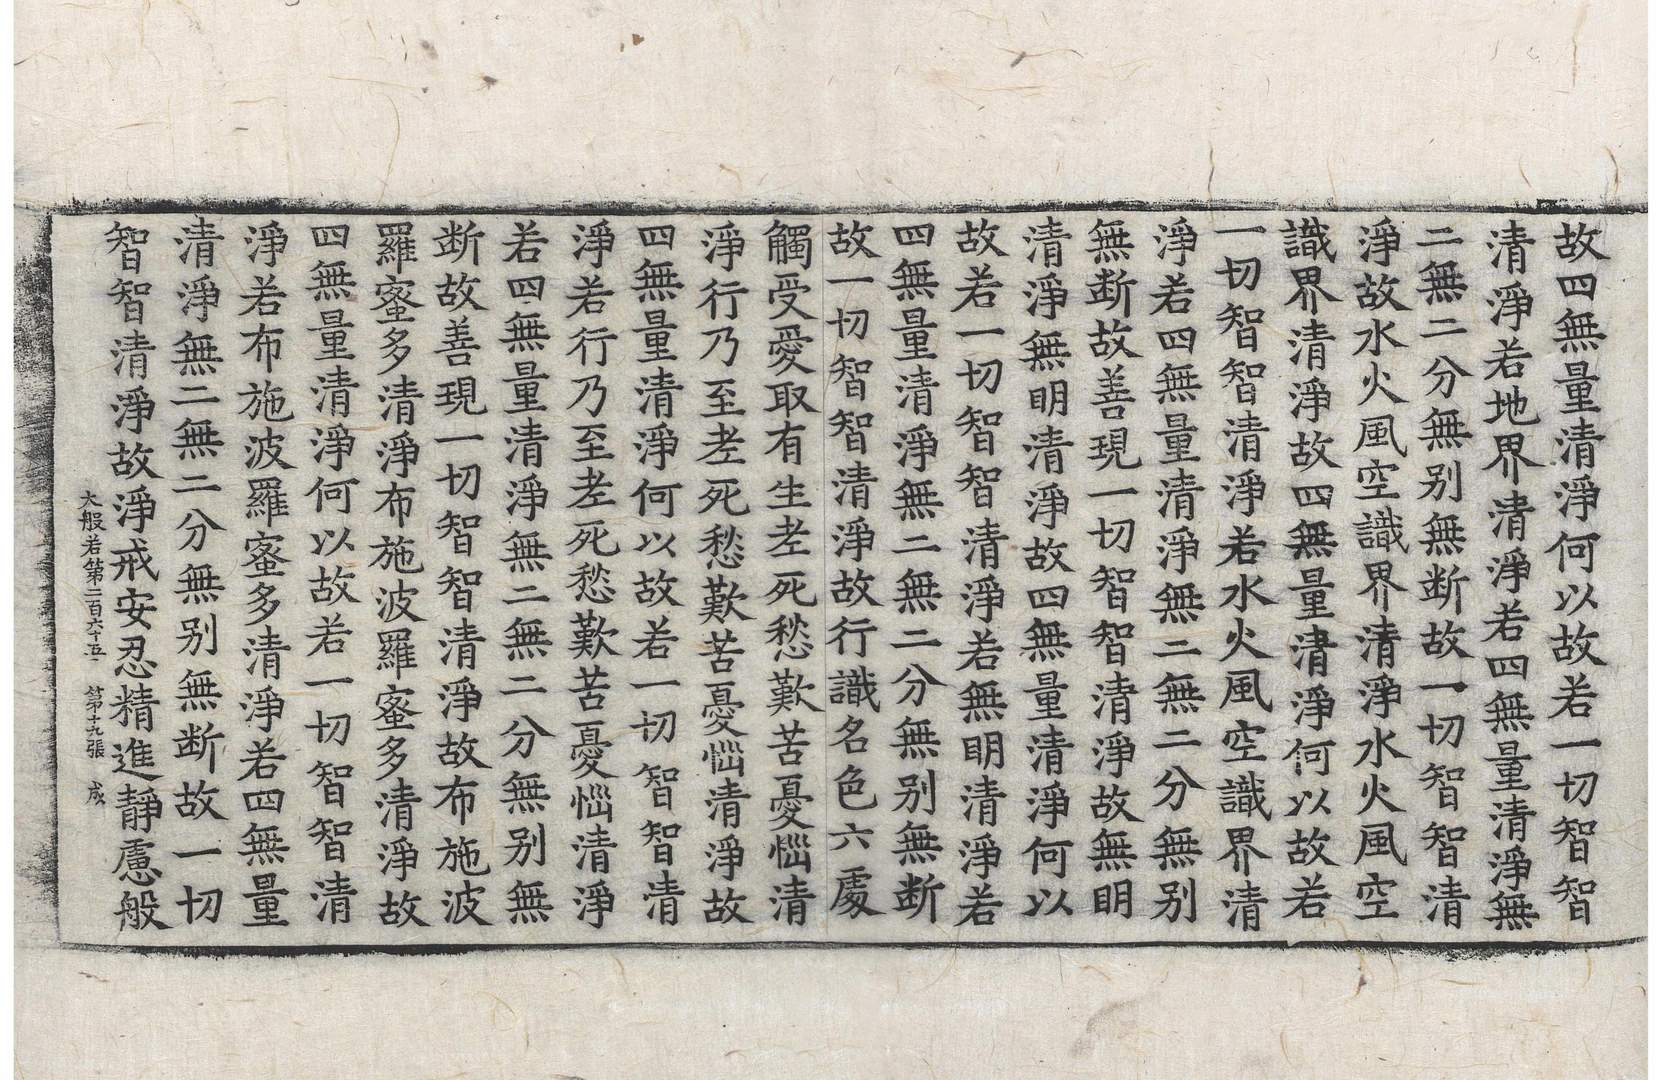 故四無量清淨何以故若一切智智
清淨若地界清淨若四無量清淨無
二無二分無别無断故一切智智清
淨故水火風空識界清淨水火風空
識界清淨故四無量清淨何以故若
一切智智清淨若水火風空識界清
淨若四無量清淨無二無二分無别
無断故善現一切智智清淨故無明
清淨無明清淨故四無量清淨何以
故若一切智智清淨若無明清淨若
四無量清淨無二無二分無别無断
故一切智智清淨故行識名色六處
觸受愛取有生老死愁歎苦憂惱清
淨行乃至老死愁歎苦憂惱清淨故
四無量清淨何以故若一切智智清
淨若行乃至老死愁歎苦憂惱清淨
若四無量清淨無二無二分無别無
断故善現一切智智清淨故布施波
羅蜜多清淨布施波羅蜜多清淨故
四無量清淨何以故若一切智智清
淨若布施波羅蜜多清淨若四無量
清淨無二無二分無别無断故一切
智智清淨故淨戒安忍精進靜慮般
大般若第二百六十五 第十九張 成